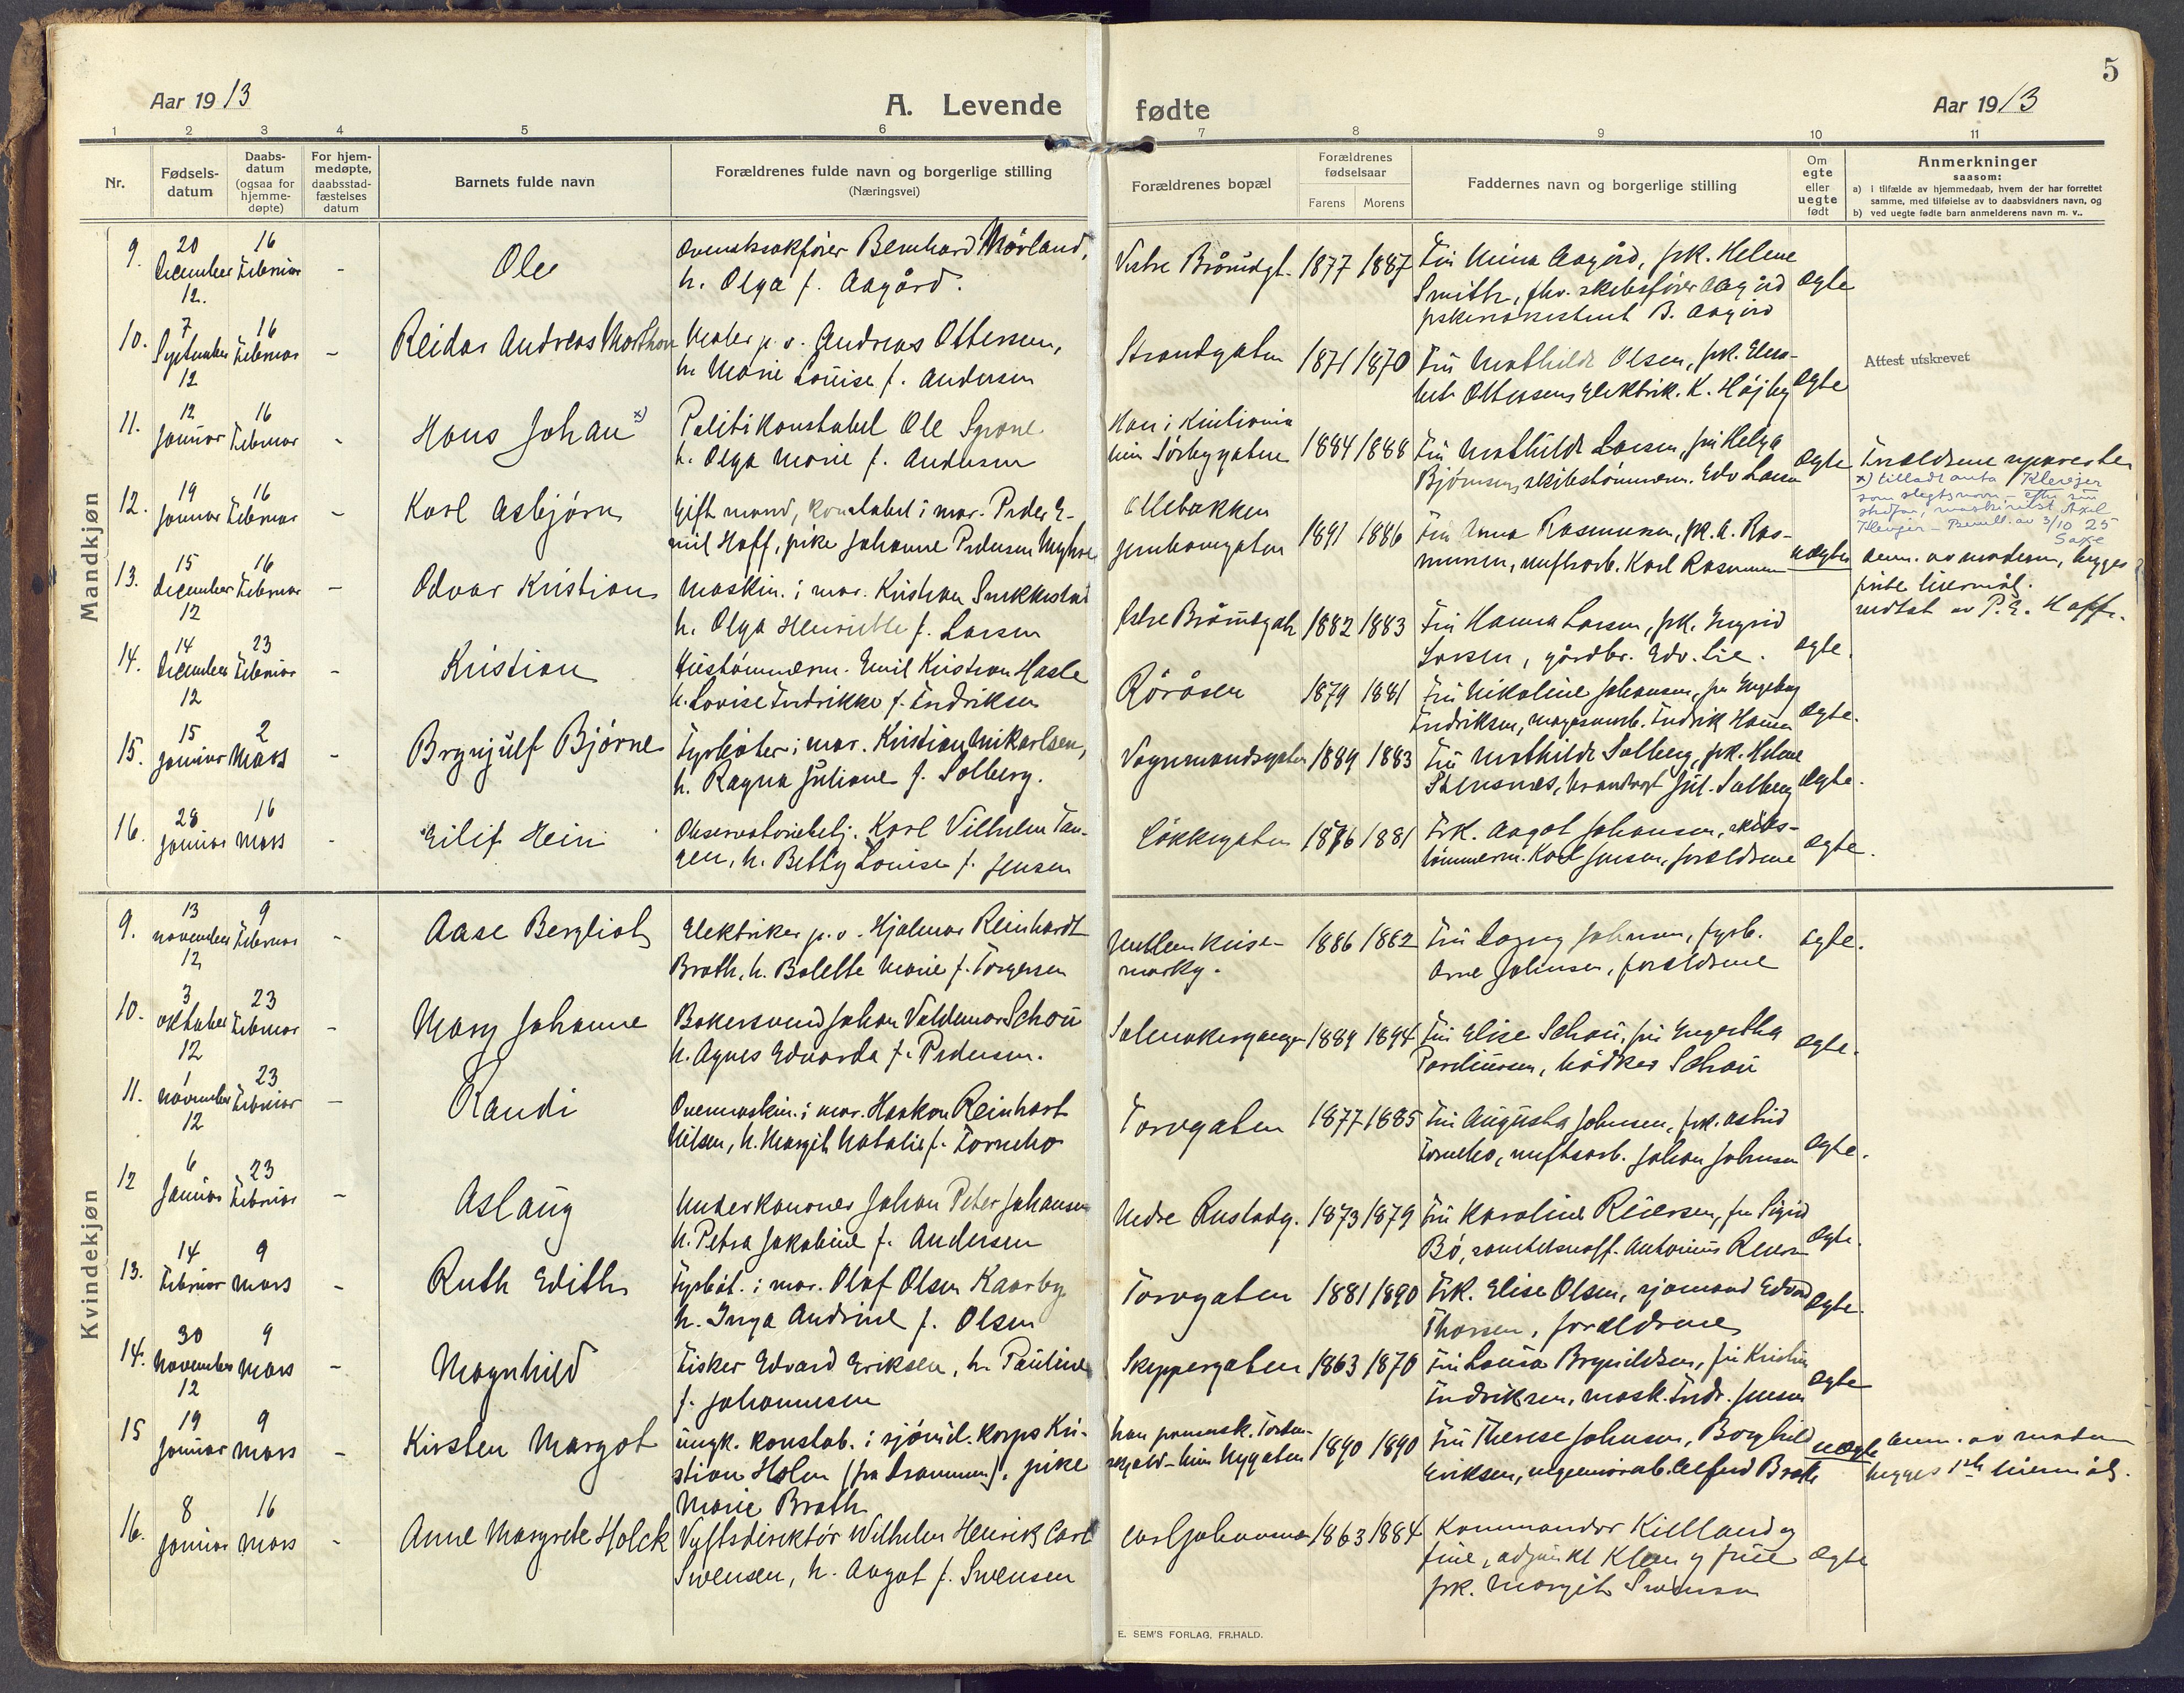 5
Aar 1913
A. Levende fødte
Aar 1913
1 2 3 4 5 6 7 8 9 10 11
Nr.
Fødsels-
datum
Daabs-
datum
(ogsaa for
hjemme-
døpte)
For hjem-
medøpte,
daabsstad-
fæstelses
datum
Barnets fulde navn
Forældrenes fulde navn og borgerlige stilling
(Næringsvei)
Forældrenes bopæl
Forældrenes
fødselsaar
Farens Morens
Faddernes navn og borgerlige stilling
Om
egte
eller
uegte
født
Anmerkninger
saasom:
a) i tilfælde av hjemmedaab, hvem der har forrettet
samme, med tilføielse av to daabsvidners navn, og
b) ved uegte fødte barn anmelderens navn m. v..
Mandkjøn
9. 20 December 12. 16 Februar - Ole
Bernhard Mörland,
h. Olga f. Aagård.
1877 1887
Fru Anna Aagård, frk. Helene
Smith, fhv. skibsfører Aagård
B. Aagård
egte
10. 7 September 12 16 Februar - Reidar Andreas Morthon
Maler p.v. Andreas Ottersen,
h. Marie Louise f. Andersen
Strandgaten 1871 1870
Fru Mathilde Olsen, frk. Elisa-
bet Ottersen, Elektrik. K. Højby
egte
Attest utskrevet
11. 12 Januar 16 Februar - Hans Johan x)
Politikonstabel Ole
h. Olga Marie f. Andersen
Han i Kristiania
hun Sörbygaten 1884 1888
Fru Mathilde Larsen, fru Helga
Björnsen, skibstömmerm. Edv Larsen
egte
x) tilladt anta Klevejer
som slegtsnavn - efter sin
stefar, maskinist Axel
Klevejer - Bevill. av 3/10 25
12. 19 Januar 16 Februar - Karl Asbjörn
Gift mand, konstabel i mar. Peder E-
mil Hoff, pike Johanne Pedersen
Ollebakken
Jernbanegaten 1891 1886
Fru Anna Rasmussen, frk. A. Ras-
mussen, Karl Rasmussen
uegte
anm. av moderen, begges
vedtat av P. E. Hoff.
13. 15 December 12 16 Februar - Odvar Kristian
Maskin. i mar. Kristian Snekkestad
h. Olga Henriette f. Larsen
1882 1883
Fru Hanna Larsen, frk. Ingrid
Larsen, gårdbr. Edv. Lie.
egte.
14. 14 December 12 23 Februar - Kristian
Hustömmerm. Emil Kristian Hasle
h. Lovise Fredrikke f. Fredriksen
Röråsen 1879 1881
Fru Nikoline Johansen, fru Ingeborg
Fredriksen, Fredrik Hansen
egte.
15. 15 Januar 2 Mars - Brynjulf Bjarne
Fyrböter i mar. Kristian Mikarlsen,
h. Ragna Juliane f. Solberg.
Vognmandsgaten 1889 1883
Fru Mathilde Solberg, frk. Helene
Stensnes, Jul. Solberg
egte.
16. 28 Januar 16 Mars - Eilif Hein
Karl Vilhelm Tan-
gen, h. Betty Louise f. Jensen
Lökkegaten 1876 1881
Frk. Aagot Johansen, skibs-
tömmerm. Karl Jensen, forældrene
egte.
Kvindekjøn
9. 13 November 12 9 Februar - Aase Bergliot
Elektriker p.v. Hjalmar Reinhardt
Brath, h. Bolette Marie f. Torgersen
1886 1882
Fru Dagny Johnsen, fyrb.
Arne Johnsen, forældrene
egte.
10. 3 Oktober 12 23 Februar - Mary Johanne
Bakersvend Johan Valdemar Schou
h. Agnes Edvarda f. Pedersen.
1889 1894
Fru Elise Schou, fru Ingertha
bödker Schou
egte.
11. 1 November 12 23 Februar - Randi
Haakon Reinhart
Nilsen, h. Margit Natalie f. Torneho
Torvgaten 1877 1885
Fru Augusta Johnsen, frk. Astrid
Torneho, Johan Johnsen
egte.
12 6 Januar 23 Februar - Aslaug
Underkanoner Johan Peter Johansen
h. Petra Jakobine f. Andersen
Nedre Rustadg. 1873 1879
Fru Karoline Reiersen, fru Sigrid
Bö, Antonius Reiersen
egte.
13. 14 Februar 9 Mars - Ruth Edith
Fyrböt. i mar. Olaf Olsen Kaarby
h. Inga Andrine f. Olsen
Torvgaten 1881 1890
Frk. Elise Olsen, sjömand Edvard
Thorsen, forældrene
egte.
14. 30 November 12 9 Mars - Magnhild
Fisker Edvard Eriksen, h. Pauline
f. Johannesen
Skippergaten 1863 1870
Fru Lovisa Brynildsen, fru Kristine
Fredriksen, mask. Fredr. Jensen
egte
15 19 Januar 9 Mars - Kirsten Margot
ungk. konstab. i sjömil. korps Kri-
stian Holm (fra Drammen), pike
Marie Brath
hun Nygaten 1890 1890
Fru Therese Johnsen, Borghild
Eriksen, Alfred Brath
uegte
anm. av moderen
begges 1ste leiermål.
16. 8 Januar 16 Mars - Anne Margrete Holck
Verftsdirektör Wilhelm Henrik Carl
Swensen, h. Aagot f. Swensen
1863 1884
Kommandör Kielland og
frue, adjunkt Klem og frue
frk. Margit Swensen
egte
E. SEM'S FORLAG, FR.HALD.